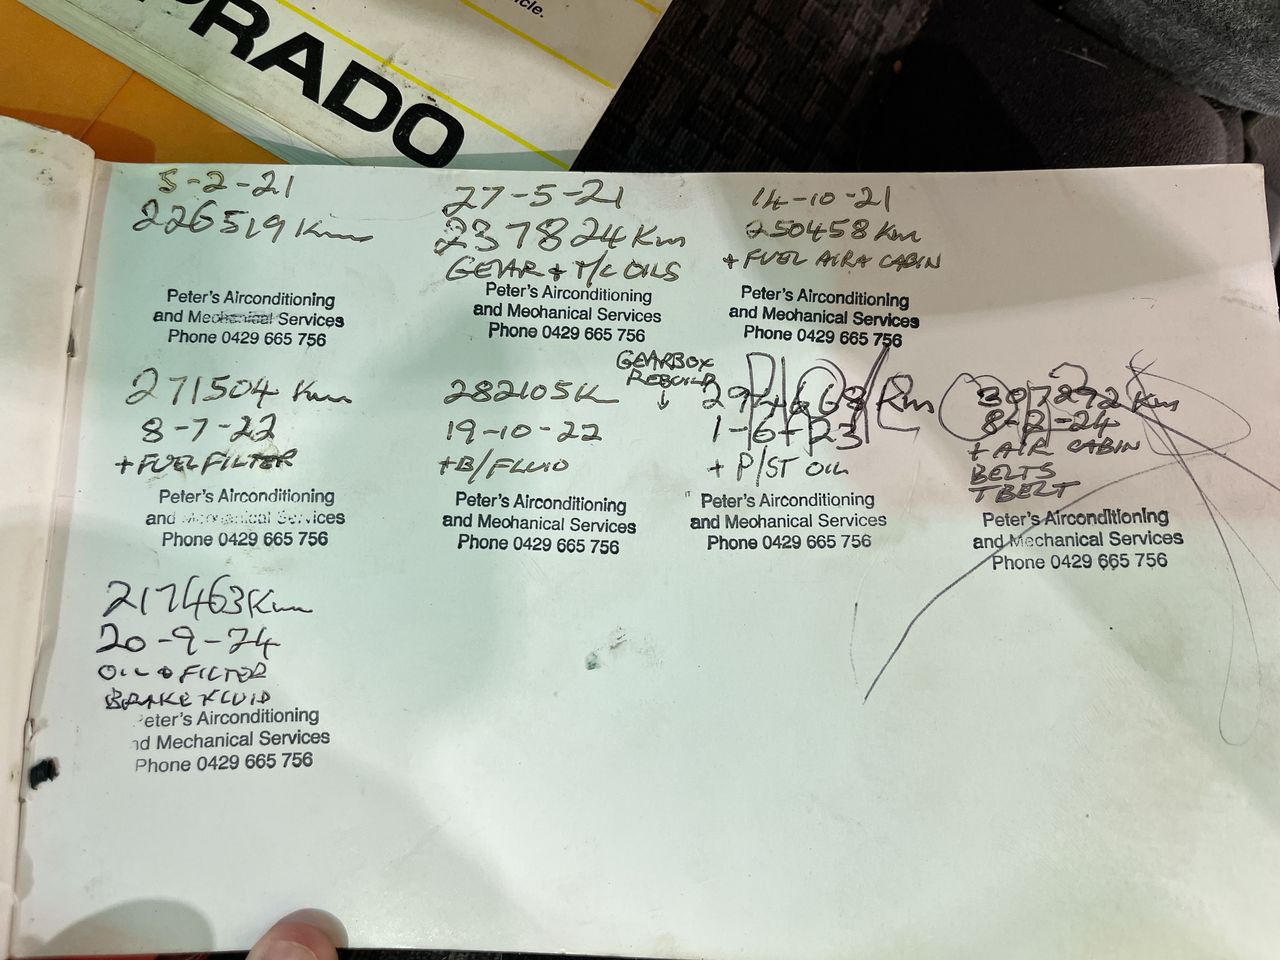 cle.
PRADO
5-2-21
226519 Km
Peter's Airconditioning
and Mechanical Services
Phone 0429 665 756
27-5-21
237824 Km
GEAR + T/C OILS
Peter's Airconditioning
and Mechanical Services
Phone 0429 665 756
14-10-21
250458 Km
+ FUEL AIR & CABIN
Peter's Airconditioning
and Mechanical Services
Phone 0429 665 756
271504 Km
8-7-22
+ FUEL FILTER
Peter's Airconditioning
and Mechanical Services
Phone 0429 665 756
282105K
19-10-22
+B/FLUID
Peter's Airconditioning
and Mechanical Services
Phone 0429 665 756
GEARBOX
REBUILD
294668 Km
1-6-23
+ P/ST OIL
Peter's Airconditioning
and Mechanical Services
Phone 0429 665 756
307892 Km
8-2-24
+ AIR CABIN
BELTS
T BELT
Peter's Airconditioning
and Mechanical Services
Phone 0429 665 756
217463 Km
20-9-24
OIL & FILTER
BRAKE FLUID
eter's Airconditioning
nd Mechanical Services
Phone 0429 665 756